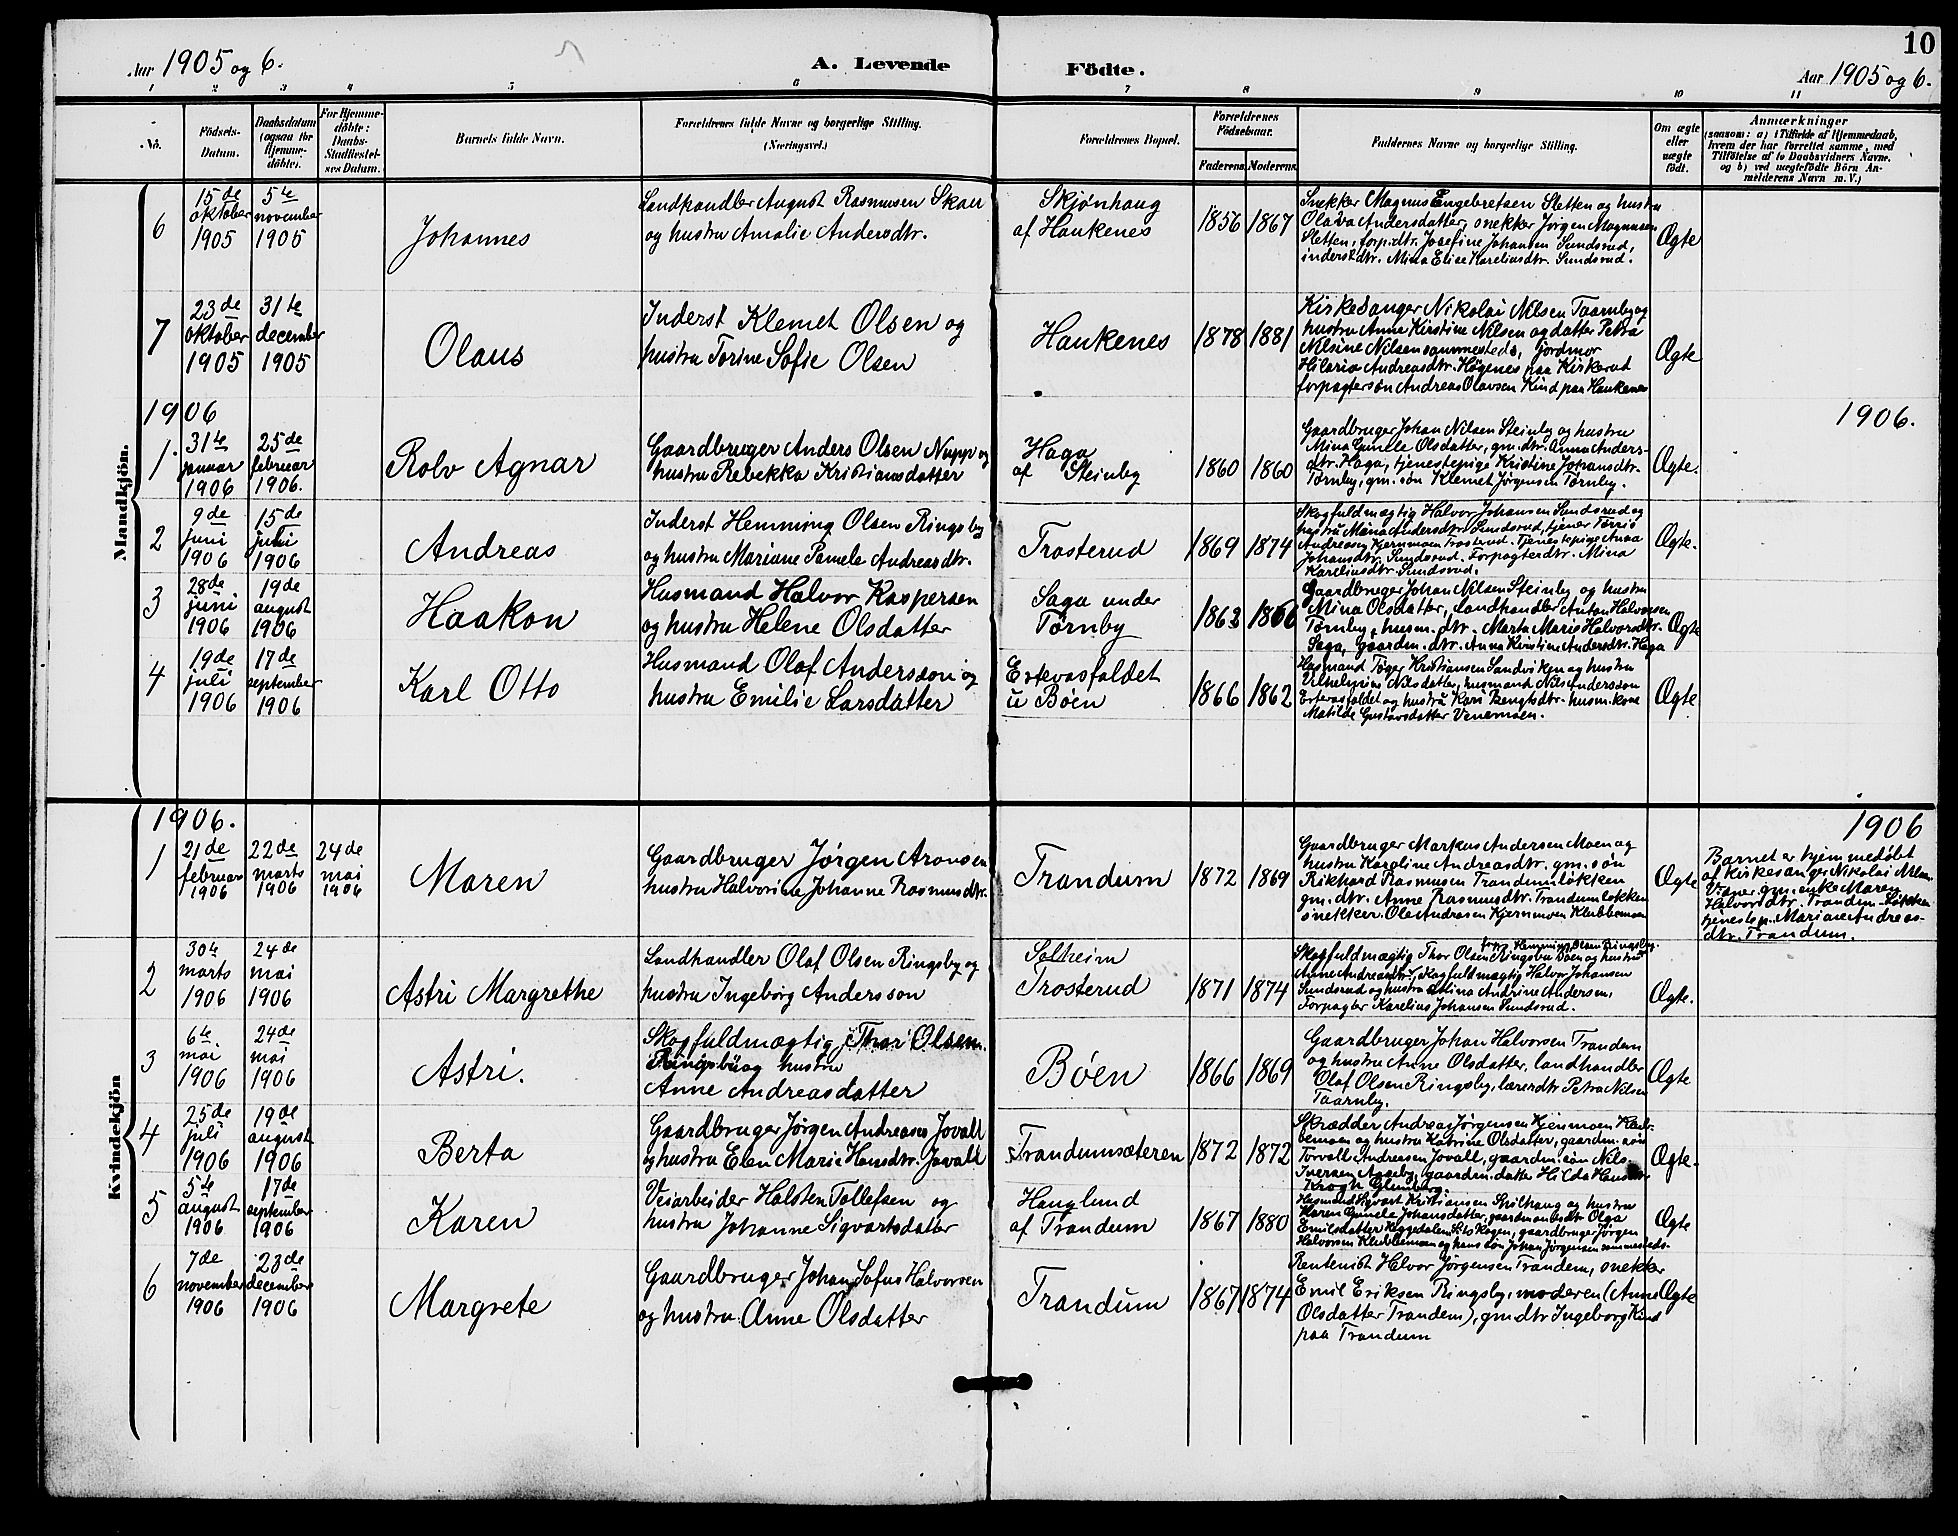 10
Aar 1905 og 6.
A. Levende
Födte.
Aar 1905 og 6.
1 2 3 4 5 6 7 8 9 10 11
No.
Födsels-
Datum.
Daabsdatum
(ogsaa for
Hjemme-
döbte).
For Hjemme-
döbte:
Daabs-
Stadfæstel-
ses Datum.
Barnets fulde Navn.
Forældrenes fulde Navne og borgerlige Stilling.
(Næringsvei.)
Forældrenes Bopæl.
Forældrenes
Födselsaar.
Faderens. Moderens.
Faddernes Navne og borgerlige Stilling.
Om ægte
eller
uægte
födt.
Anmærkninger
(saasom: a) i Tilfælde af Hjemmedaab,
hvem der har forrettet samme, med
Tilföielse af to Daabsvidners Navne,
og b) ved uægtefödte Börn An-
melderens Navn m. V.)
Mandkjön.
6
15de
oktober
1905
5te
november
1905
Johannes
Landhandler August Rasmusen Skau
og hustru Amalie Andersdtr.
Skjønhaug
af Haukenes
1856 1867
Snekker Magnus Engebretsen Sletten og hustru
Olava Andersdatter, snekker Jørgen Magnusen
Sletten, forp.dtr. Josefine Johansen Sundsrud,
inderstdtr. Mina Elise Kareliusdtr. Sundsrud.
Ægte
7
23de
oktober
1905
31te
december
1905
Olaus
Inderst Klemet Olsen og
hustru Torine Sofie Olsen
Haukenes
1878 1881
Kirkesanger Nikolai Nilsen Taarnby og
hustru Anne Kirstine Nilsen og datter Petra
Nilsine Nilsen sammesteds, jordmor
Hilaria Andreasdtr. Høgenes paa Kirkerud
forpagtersøn Andreas Olavsen Kind paa Haukenes
Ægte
1906
1906.
1.
31te
januar
1906
25de
februar
1906.
Rolv Agnar
Gaardbruger Anders Olsen Nupp og
hustru Rebekka Kristiansdatter
Haga
af Steinby
1860 1860
Gaardbruger Johan Nilsen Steinby og hustru
Mina Gunele Olsdatter, gm. dtr. Anna Anders-
dtr. Haga, tjenestepige Kristine Johansdtr.
Tørnby, gm. søn Klemet Jørgensen Tørnby.
Ægte.
2
9de
juni
1906
15de
juni
1906
Andreas
Inderst Hemming Olsen Ringsby
og hustru Mariane Pamela Andreasdtr.
Trosterud
1869 1874
Skogfuldmægtig Halvor Johansen Sundsrud og
hustru Mina Andersdtr. Sundsrud, tjener
Andreasen Kjernmoen Trosterud. Tjenestepige Anna
Johansdtr. Sundsrud. Forpagterdtr. Mina
Kareliusdtr. Sundsrud.
Ægte.
3
28de
juni
1906
19de
august
1906
Haakon
Husmand Halvor Kaspersen
og hustru Helene Olsdatter
Saga under
Tørnby
1863 1866
Gaardbruger Johan Nilsen Steinby og hustru
Mina Olsdatter, Landhandler Anton Halvorsen
Tørnby, husm. dtr. Marta Marie Halvorsdtr.
Saga, Gaardm. dtr. Anna Kirstine Andersdtr. Haga
Ægte
4
19de
juli
1906
17de
september
1906
Karl Otto
Husmand Olaf Andersson og
hustru Emilie Larsdatter
Ertevasfaldet
u Bøen
1866 1862
Husmand Tøger Kristiansen Sandviken og hustru
Vilhelmine Nilsdatter, husmand Nils Andersson
Ertevasfaldet og hustru Kari Bengtsdtr. husm. kone
Matilde Gustavsdatter Venemoen.
Ægte
Kvindekjön
1906.
1906
1
21de
februar
1906
22de
marts
1906
24de
mai
1906
Maren
Gaardbruger Jørgen Aronsen
hustru Halvorine Johanne Rasmusdtr.
Trandum
1872 1869
Gaardbruger Markus Andersen Moen og
hustru Karoline Andreasdtr. gm. søn
Rikhard Rasmusen Trandumsløkken
gm. dtr. Anne Rasmusdtr. Trandumløkken
snekker Ole Andreasen Kjernmoen Klubbemoen
Ægte
Barnet er hjemmedøbt
af kirkesanger Nikolai Nilsen
Vidner gm. enke Maren
Halvorsdtr. Trandum-Løkken
tjenestep. Mariane Andreas-
dtr. Trandum.
2
30te
marts
1906
24de
mai
1906
Astri Margrethe
Landhandler Olaf Olsen Ringsby og
hustru Ingeborg Andersson
Solheim
Trosterud
1871 1874
forp. Hemming Olsen Ringsby.
Skogfuldmægtig Thor Olsen Ringsby Bøen og hustru
Anne Andreasdtr., skogfuldmægtig Halvor Johansen
Sundsrud og hustru Mina Andrine Andersen,
Forpagter Karelius Johansen Sundsrud.
Ægte.
3
6te
mai
1906
24de
mai
1906
Astri.
Skogfuldmægtig Thor Olsen
Ringsby og hustru
Anne Andreasdatter
Bøen
1866 1869
Gaardbruger Johan Halvorsen Trandem
og hustru Anne Olsdatter, landhandler
Olaf Olsen Ringsby, lærerdtr Petra Nilsen
Taarnby.
Ægte
4
25de
juli
1906
19de
august
1906
Berta
Gaardbruger Jørgen Andreasen Jovall
og hustru Elen Marie Hansdtr. Jovall
Trandumsæteren
1872 1872
Skrædder Andreas Jørgensen Kjernmoen Klub-
bemoen og hustru Katrine Olsdatter, gaardm. søn
Torvall Andreasen Jovall, gaardm. søn Nils
Iversen Aggeby, gaardm. datter Hilda Hansdtr.
Krogh Glemberg.
Ægte.
5
5te
august
1906
17de
september
1906
Karen
Veiarbeider Halsten Tollefsen og
hustru Johanne Sigvartsdatter
Hauglund
af Trandum
1867 1880
Husmand Sigvart Kristiansen Spilhaug og hustru
Karen Gunele Johansdatter, gaardmandsdtr Olga
Emilsdatter Heggedalen Setskogen, gaardbruger Jørgen
Halvorsen Klubbemoen og hans søn Johan Jørgensen sammesteds.
Ægte
6
7de
november
1906
23de
december
1906
Margrete
Gaardbruger Johan Sofus Halvorsen
og hustru Anne Olsdatter
Trandum
1867 1874
Rentenist Halvor Jørgensen Trandem, snekker
Emil Eriksen Ringsby, moderen (Anne
Olsdatter Trandem), gm.dtr Ingeborg Kind
paa Trandum
Ægte